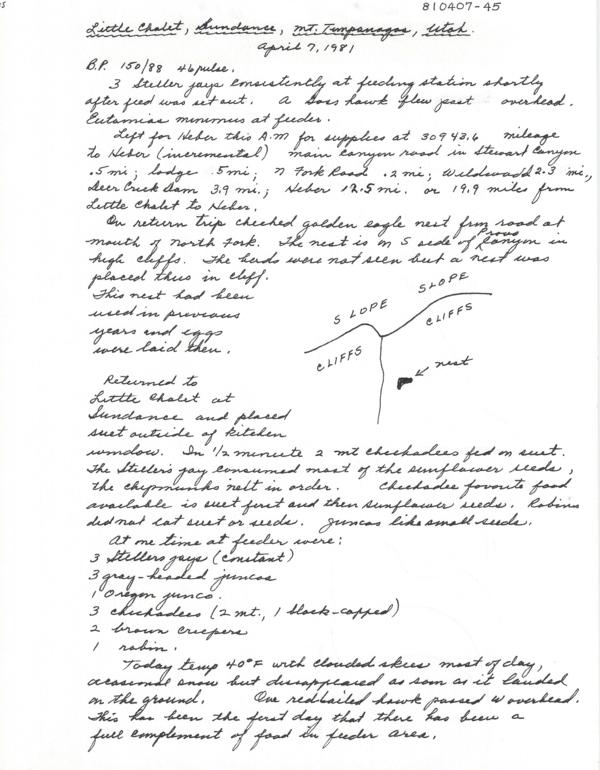 810407-45
Little Chalet, Sundance, Mt. Timpanogos, Utah.
April 7, 1981
B.P. 150/88 46 pulse.
3 Steller jays consistently at feeding station shortly
after feed was set out. A Goss hawk flew past overhead.
Eutamias minimus at feeder.
Left for Heber this A.M for supplies at 30943.6 mileage
to Heber (incremental) main canyon road in Stewart Canyon
.5 mi; lodge .5 mi; N Fork Road .2 mi; Wildwood 2.3 mi.,
Deer Creek Dam 3.9 mi.; Heber 12.5 mi. or 19.9 miles from
Little Chalet to Heber.
On return trip checked golden eagle nest from road at
mouth of North Fork. The nest is on S side of Provo Canyon in
high cliffs. The birds were not seen but a nest was
placed thus in cliff.
This nest had been
used in previous
years and eggs
were laid then.
SLOPE SLOPE
CLIFFS CLIFFS
nest
Returned to
Little Chalet at
Sundance and placed
suet outside of kitchen
window. In 1/2 minute 2 mt chickadees fed on suet.
The Steller's jay consumed most of the sunflower seeds,
the chipmunks next in order. Chickadee favorite food
available is suet first and then sunflower seeds. Robins
did not eat suet or seeds. Juncos like small seeds.
At one time at feeder were:
3 Stellers jays (constant)
3 gray-headed juncos
1 Oregon junco.
3 chickadees (2 mt., 1 black-capped)
2 brown creepers
1 robin.
Today temp 40°F with clouded skies most of day,
occasional snow but disappeared as soon as it landed
on the ground. One redtailed hawk passed W overhead.
This has been the first day that there has been a
full complement of food in feeder area.